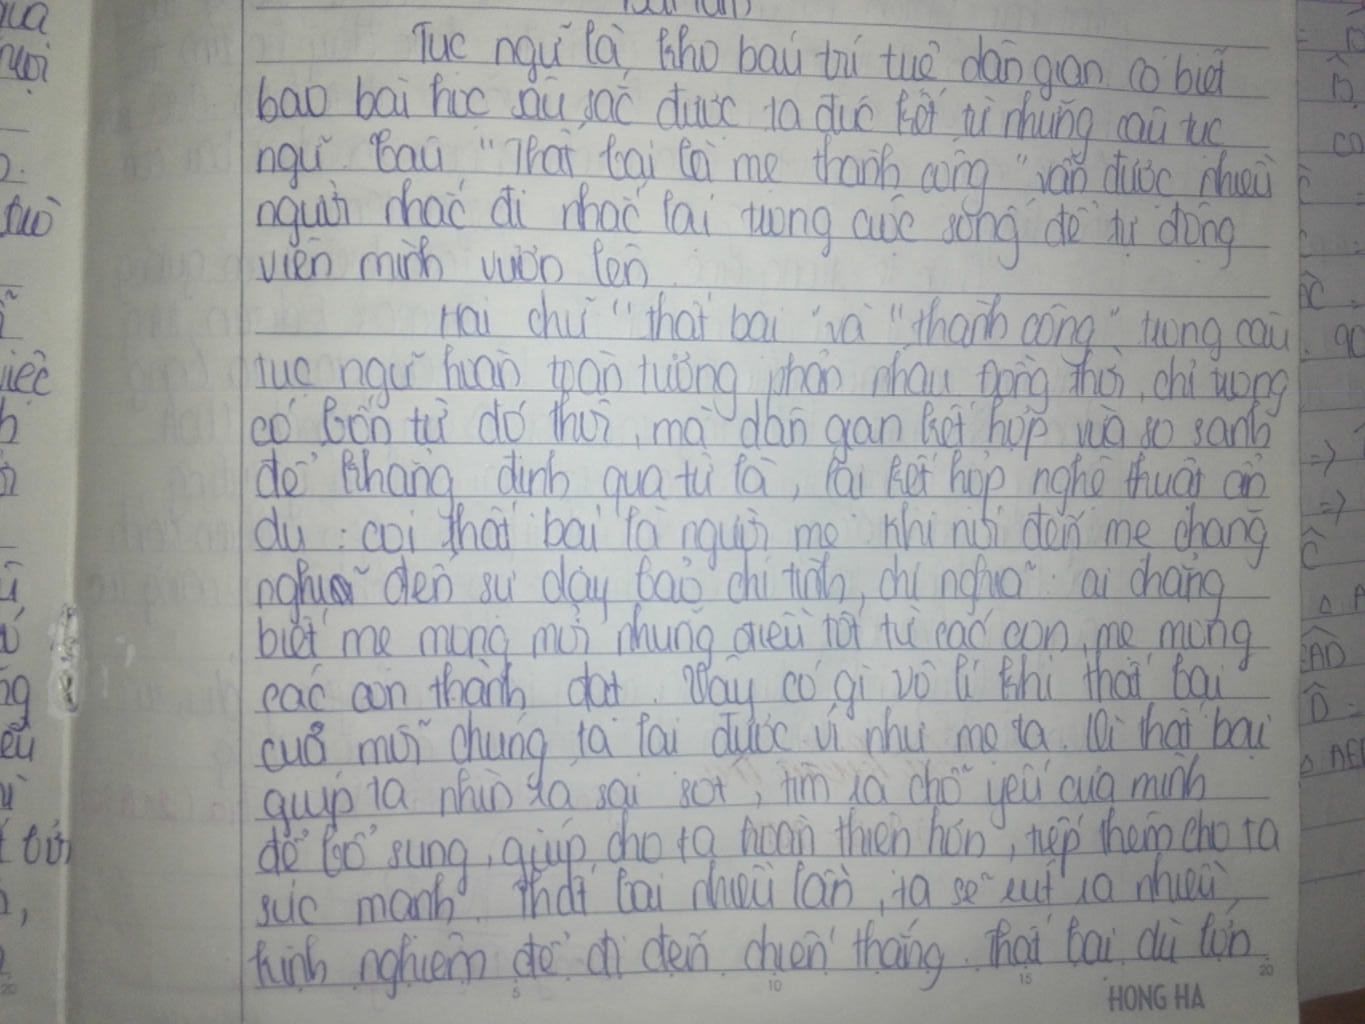 Bài làm
Tục ngữ là kho báu trí tuệ dân gian. Có biết
bao bài học sâu sắc được ta đúc kết từ những câu tục
ngữ. Câu "Thất bại là mẹ thành công" vẫn được nhiều
người nhắc đi nhắc lại trong cuộc sống để tự động
viên mình vươn lên.
Hai chữ "thất bại" và "thành công" trong câu
tục ngữ hoàn toàn tương phản nhau. Đồng thời, chỉ trong
có bốn từ đó thôi, mà dân gian kết hợp vừa so sánh
để khẳng định qua từ là, lại kết hợp nghệ thuật ẩn
dụ: coi thất bại là người mẹ. Khi nói đến mẹ chẳng
nghĩ đến sự dạy bảo chí tình, chí nghĩa. ai chẳng
biết mẹ mong mỏi những điều tốt từ các con, mẹ mong
các con thành đạt. Vậy có gì vô lí khi thất bại
của mỗi chúng ta lại được ví như mẹ ta. Vì thất bại
giúp ta nhìn ra sai sót, tìm ra chỗ yếu của mình
để bổ sung, giúp cho ta hoàn thiện hơn, tiếp thêm cho ta
sức mạnh. Thất bại nhiều lần, ta sẽ rút ra nhiều
kinh nghiệm để đi đến chiến thắng. Thất bại dù lớn
5 10 15 20
HONG HA